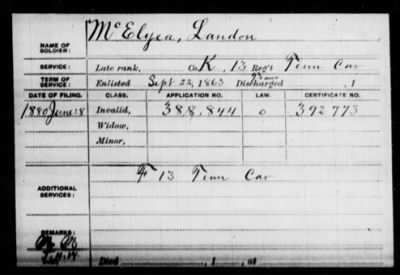 NAME OF SOLDIER: McElyea, Landon
SERVICE: Late rank, Co. K, 13 Reg't Tenn Cav
TERM OF SERVICE: Enlisted Sept 22, 1863 Discharged , 1
DATE OF FILING. CLASS. APPLICATION NO. LAW. CERTIFICATE NO.
1880 June 8 Invalid, 388,844 o 392773
Widow,
Minor,
ADDITIONAL SERVICES: F 13 Tenn Cav
REMARKS:
Died , 1 , at